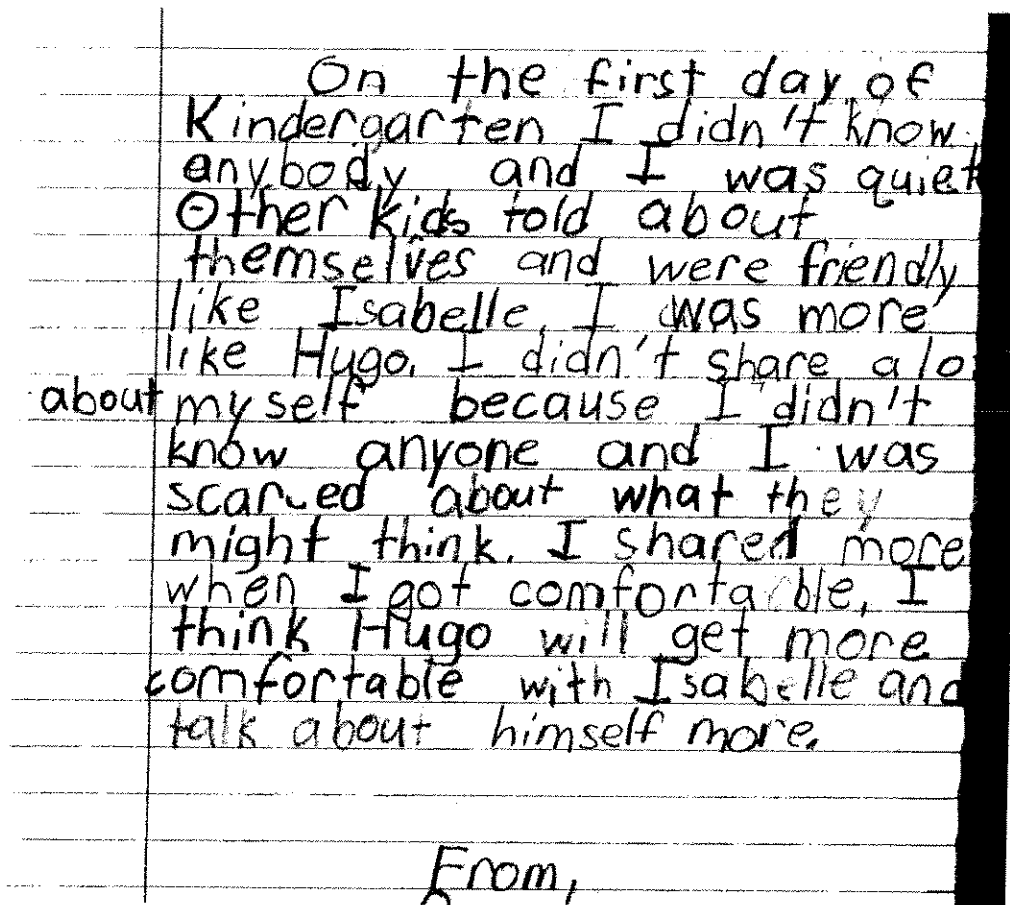 On the first day of
Kindergarten I didn't know
anybody and I was quiet
Other kids told about
themselves and were friendly
like Isabelle. I was more
like Hugo. I didn't share alo
about myself because I didn't
know anyone and I was
scared about what they
might think. I shared more
when I got comfortable. I
think Hugo will get more
comfortable with Isabelle and
talk about himself more.
From,